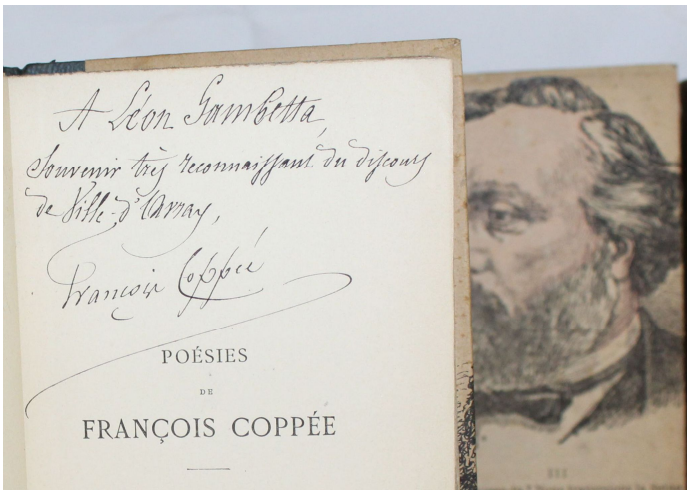 A Léon Gambetta,
Souvenir très reconnaissant du discours
de Ville-d'Avray,
François Coppée
POÉSIES
DE
FRANÇOIS COPPÉE
III